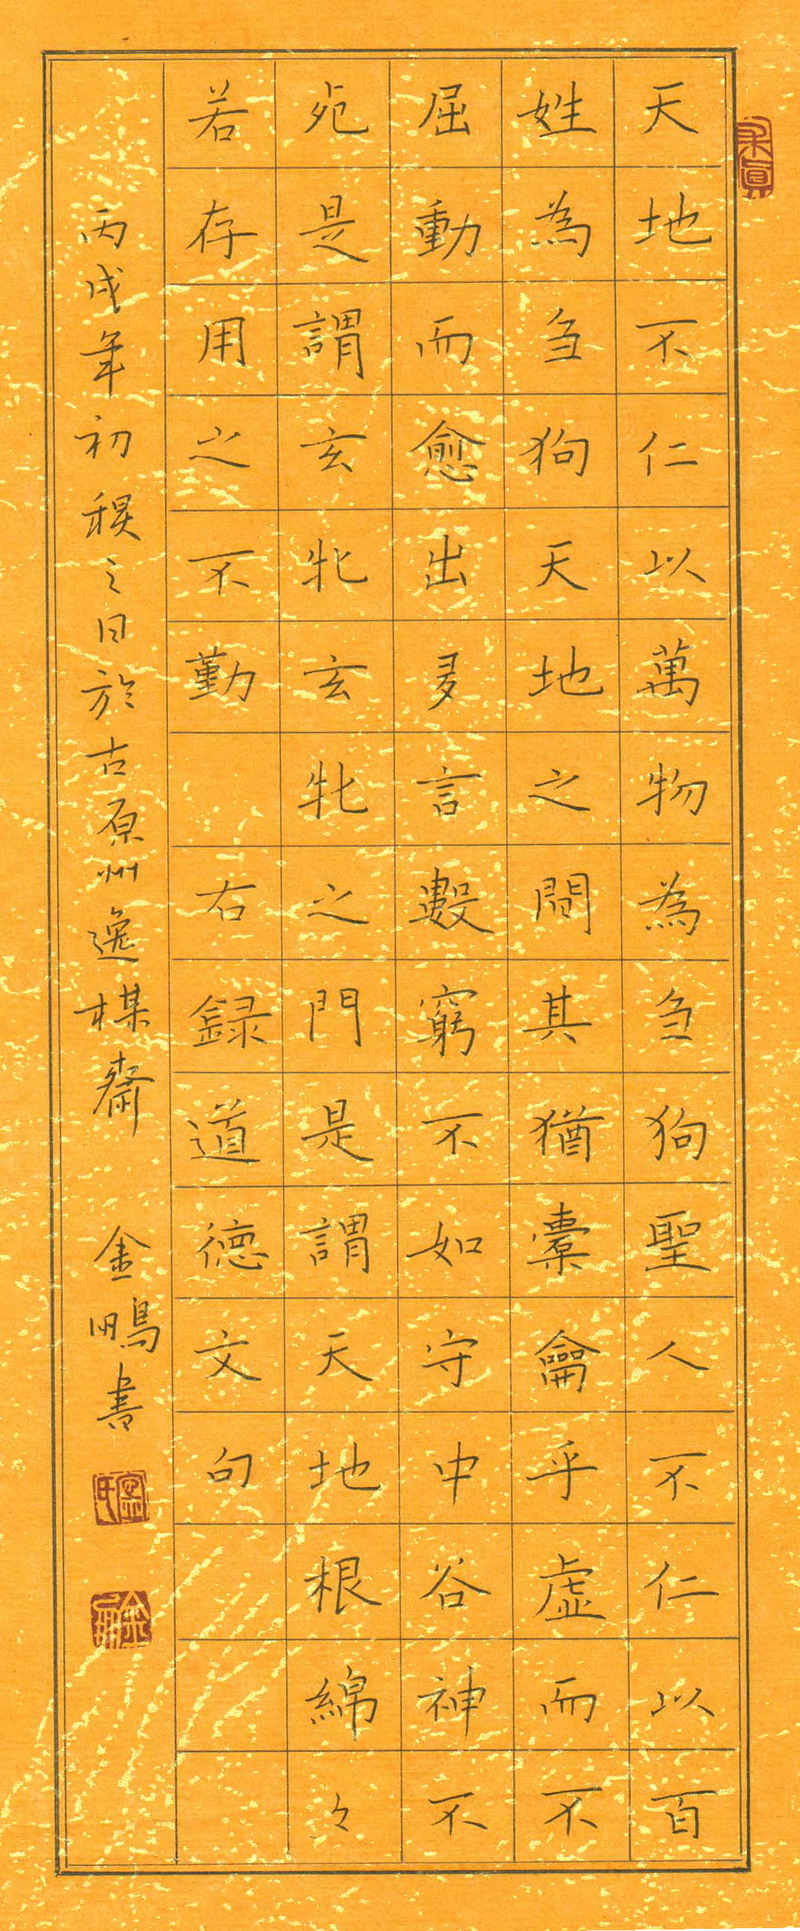 天地不仁以萬物為刍狗聖人不仁以百
姓為刍狗天地之間其猶橐龠乎虛而不
屈動而愈出多言數窮不如守中谷神不
死是謂玄牝玄牝之門是謂天地根綿々
若存用之不勤 右録道德文句
丙戌年初之日於古原州逸楳齋 金鵬書